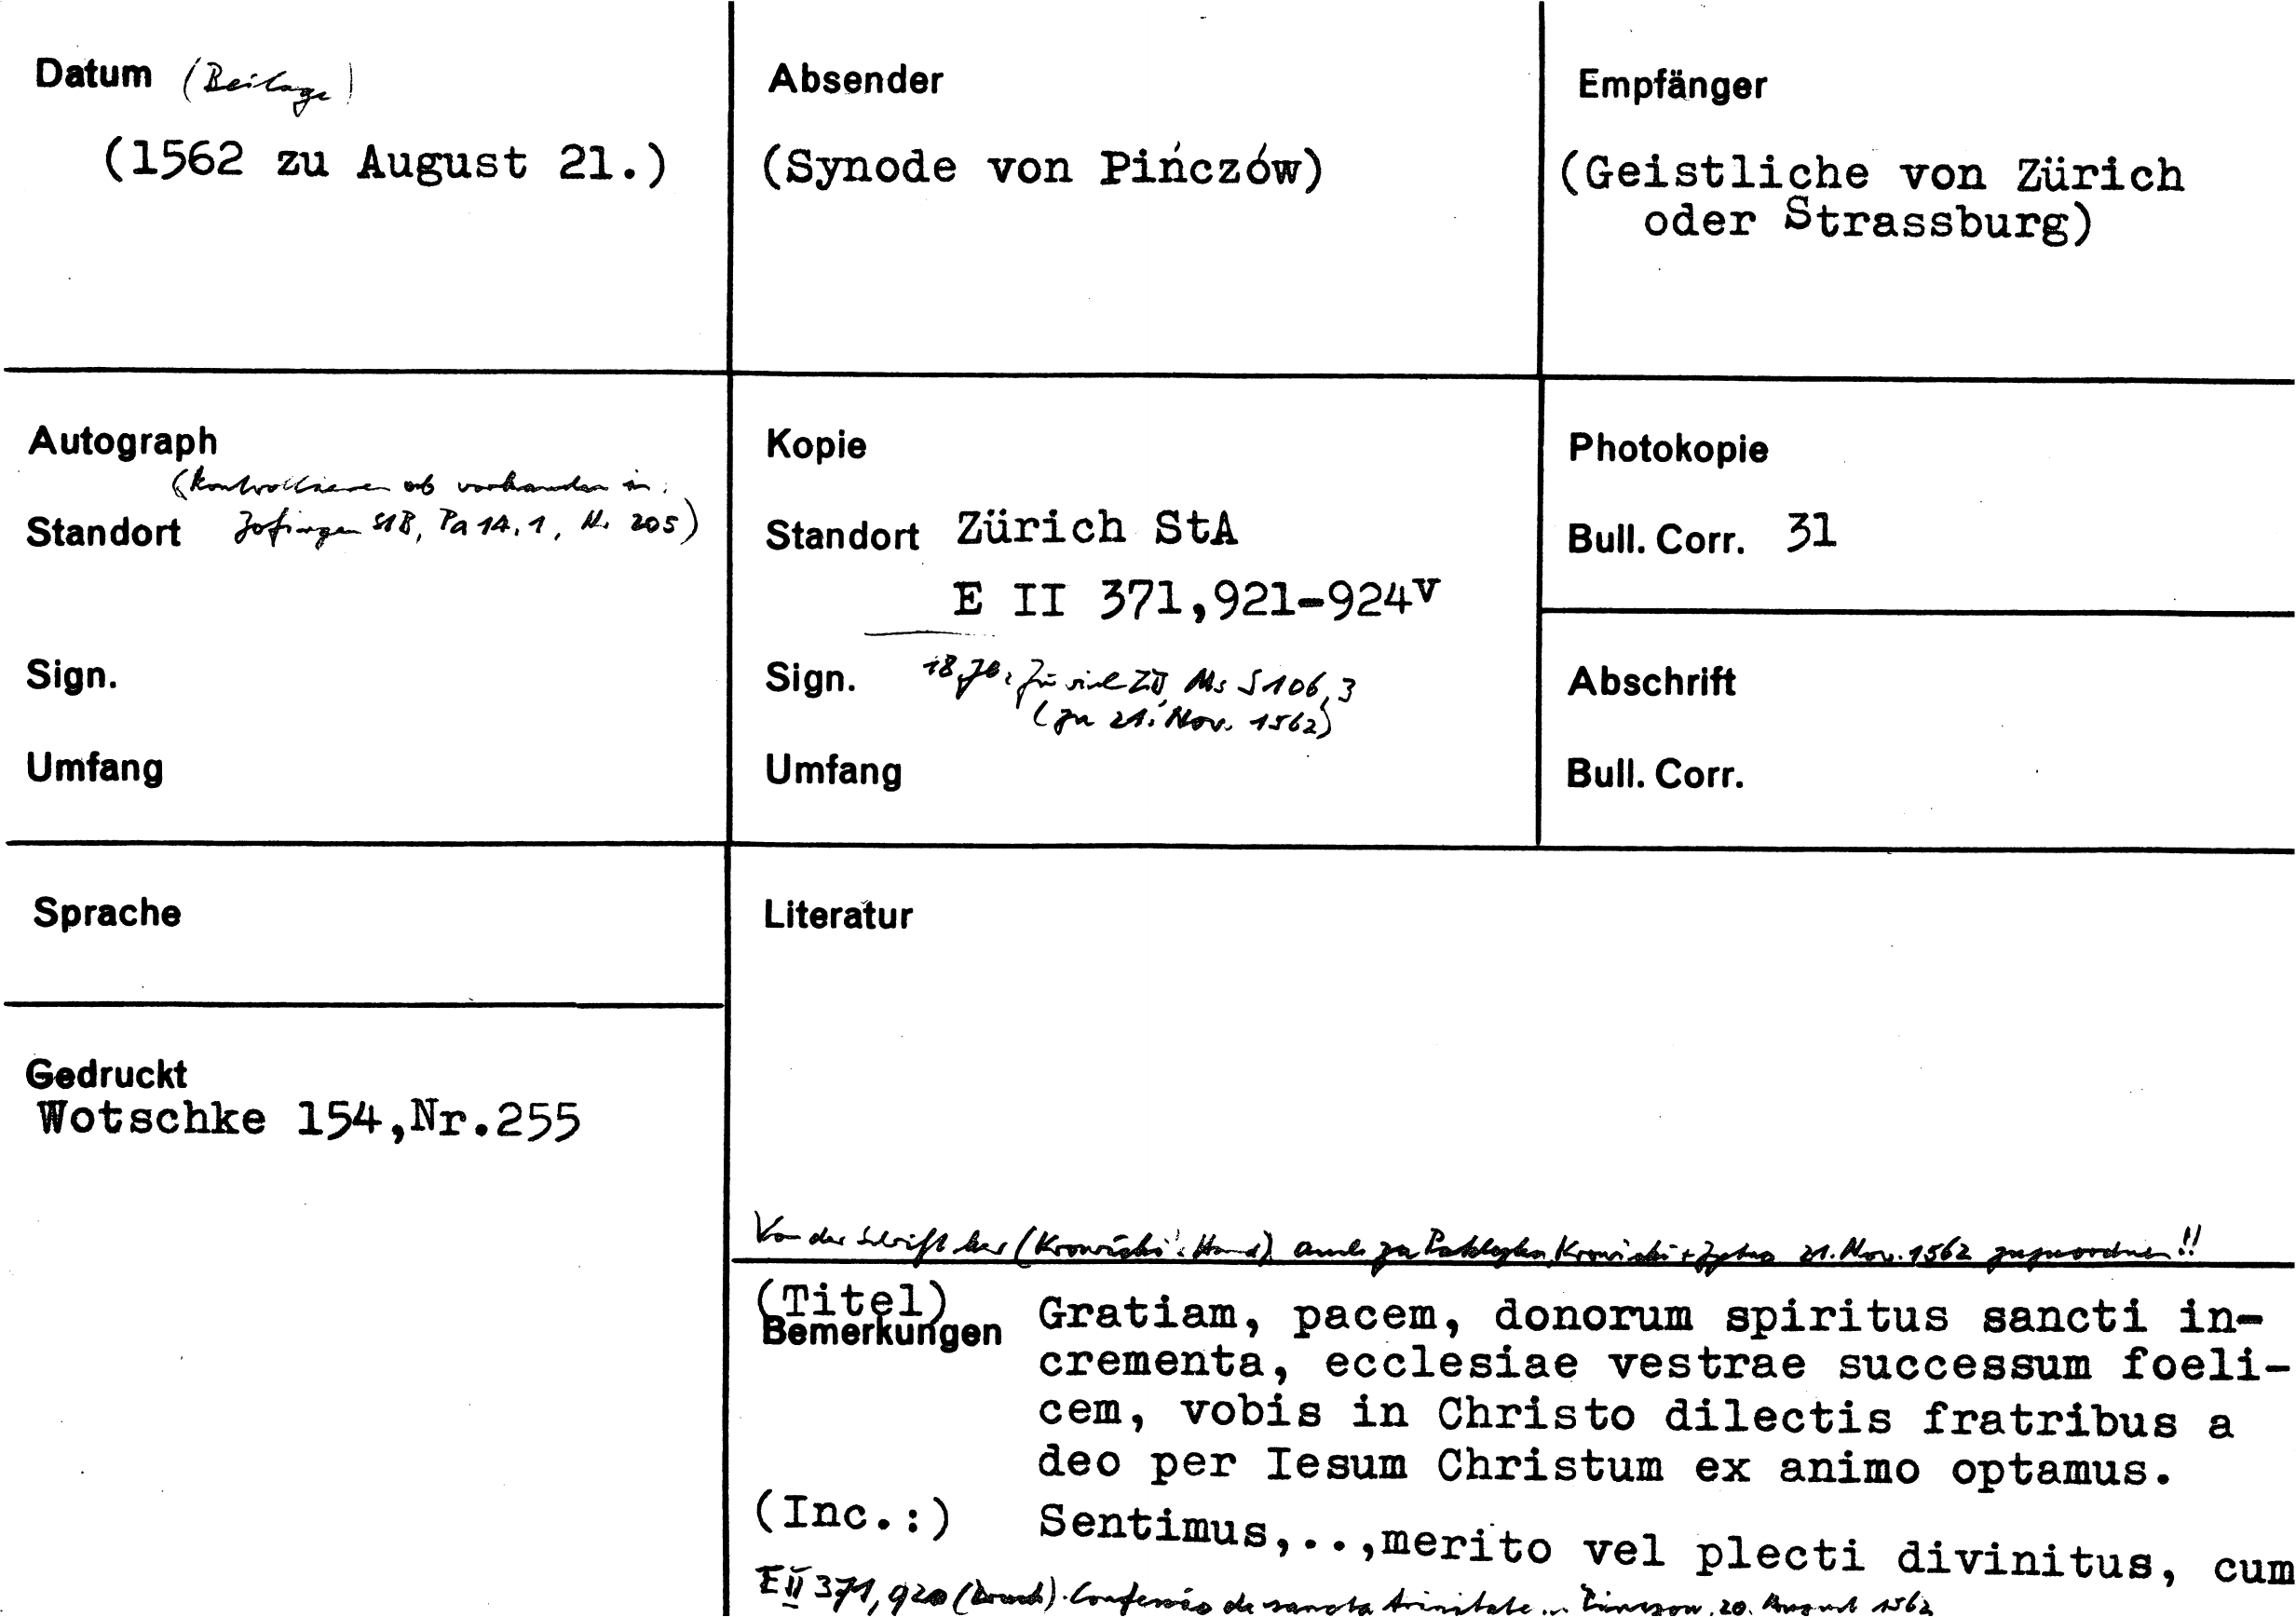 Datum (Beilage)
(1562 zu August 21.)
Absender
(Synode von Pińczów)
Empfänger
(Geistliche von Zürich
oder Strassburg)
Autograph
(Kontrollieren ob vorhanden in:
Standort Zofingen StB, Pa 14.1, Nr. 205)
Sign.
Umfang
Kopie
Standort Zürich StA
E II 371,921-924v
Sign. 18. Jh.: Zürich ZB Ms S 106, 3
(zu 21. Nov. 1562)
Umfang
Photokopie
Bull. Corr. 31
Abschrift
Bull. Corr.
Sprache
Gedruckt
Wotschke 154,Nr.255
Literatur
Von der Schrift her (Krowicki's Hand) 21. Nov. 1562 zuzuordnen!!
(Titel)
Bemerkungen Gratiam, pacem, donorum spiritus sancti in-
crementa, ecclesiae vestrae successum foeli-
cem, vobis in Christo dilectis fratribus a
deo per Iesum Christum ex animo optamus.
(Inc.:) Sentimus,..,merito vel plecti divinitus, cum
E II 371, 920 (Druck). Confessio de sancta trinitate ... Pinczow, 20. August 1562